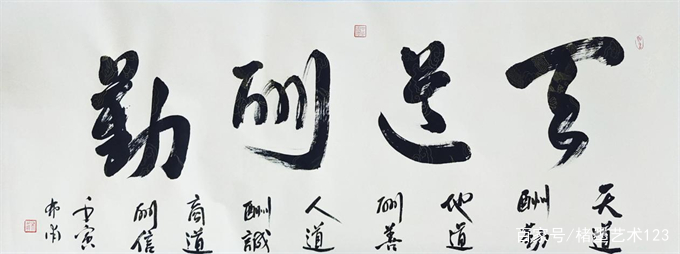 天道酬勤
天道
酬勤
地道
酬善
人道
酬誠
商道
酬信
壬寅
百家号/楮墨艺术123